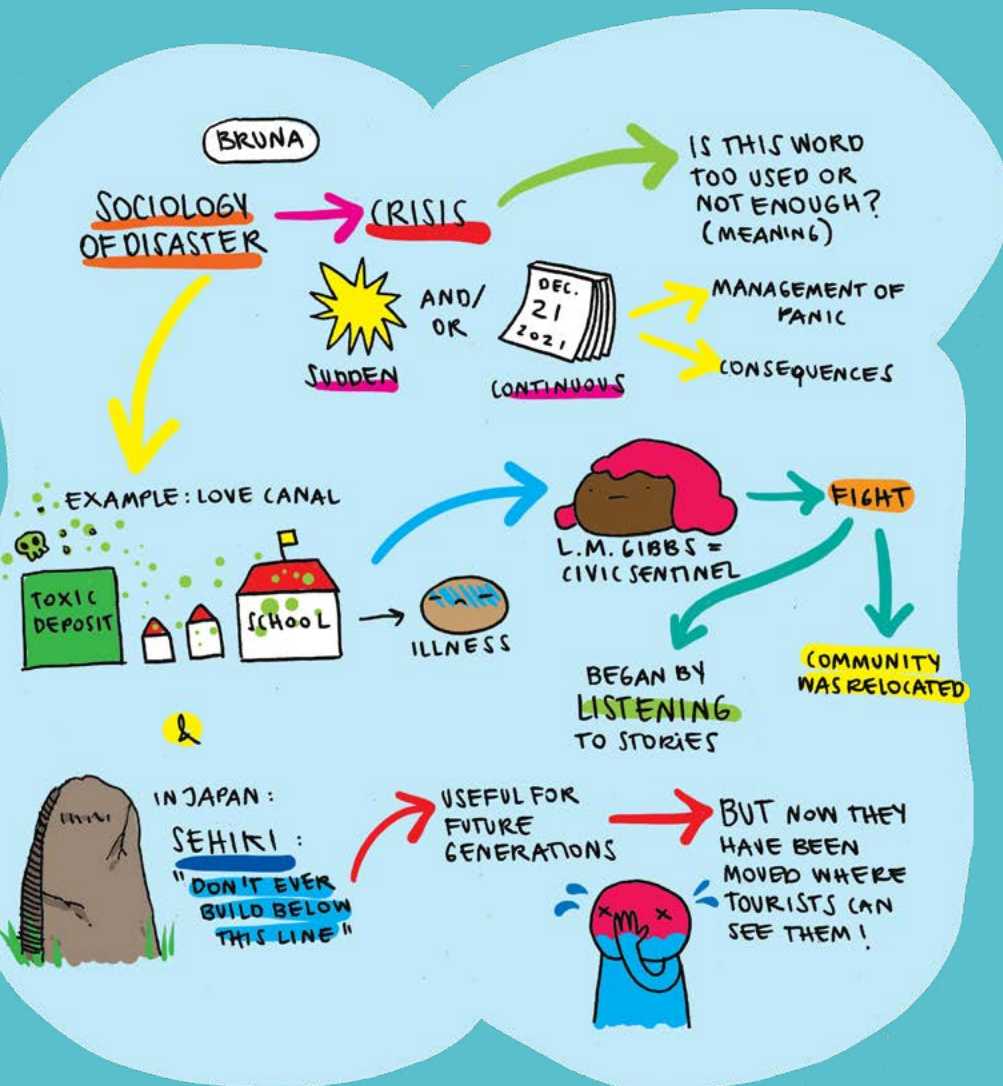 BRUNA
SOCIOLOGY
OF DISASTER
CRISIS
IS THIS WORD
TOO USED OR
NOT ENOUGH?
(MEANING)
SUDDEN
AND/
OR
DEC.
21
2021
CONTINUOUS
MANAGEMENT OF
PANIC
CONSEQUENCES
EXAMPLE: LOVE CANAL
TOXIC
DEPOSIT
SCHOOL
ILLNESS
L.M. GIBBS =
CIVIC SENTINEL
FIGHT
BEGAN BY
LISTENING
TO STORIES
COMMUNITY
WAS RELOCATED
&
IN JAPAN:
SEHIKI:
"DON'T EVER
BUILD BELOW
THIS LINE"
USEFUL FOR
FUTURE
GENERATIONS
BUT NOW THEY
HAVE BEEN
MOVED WHERE
TOURISTS CAN
SEE THEM!